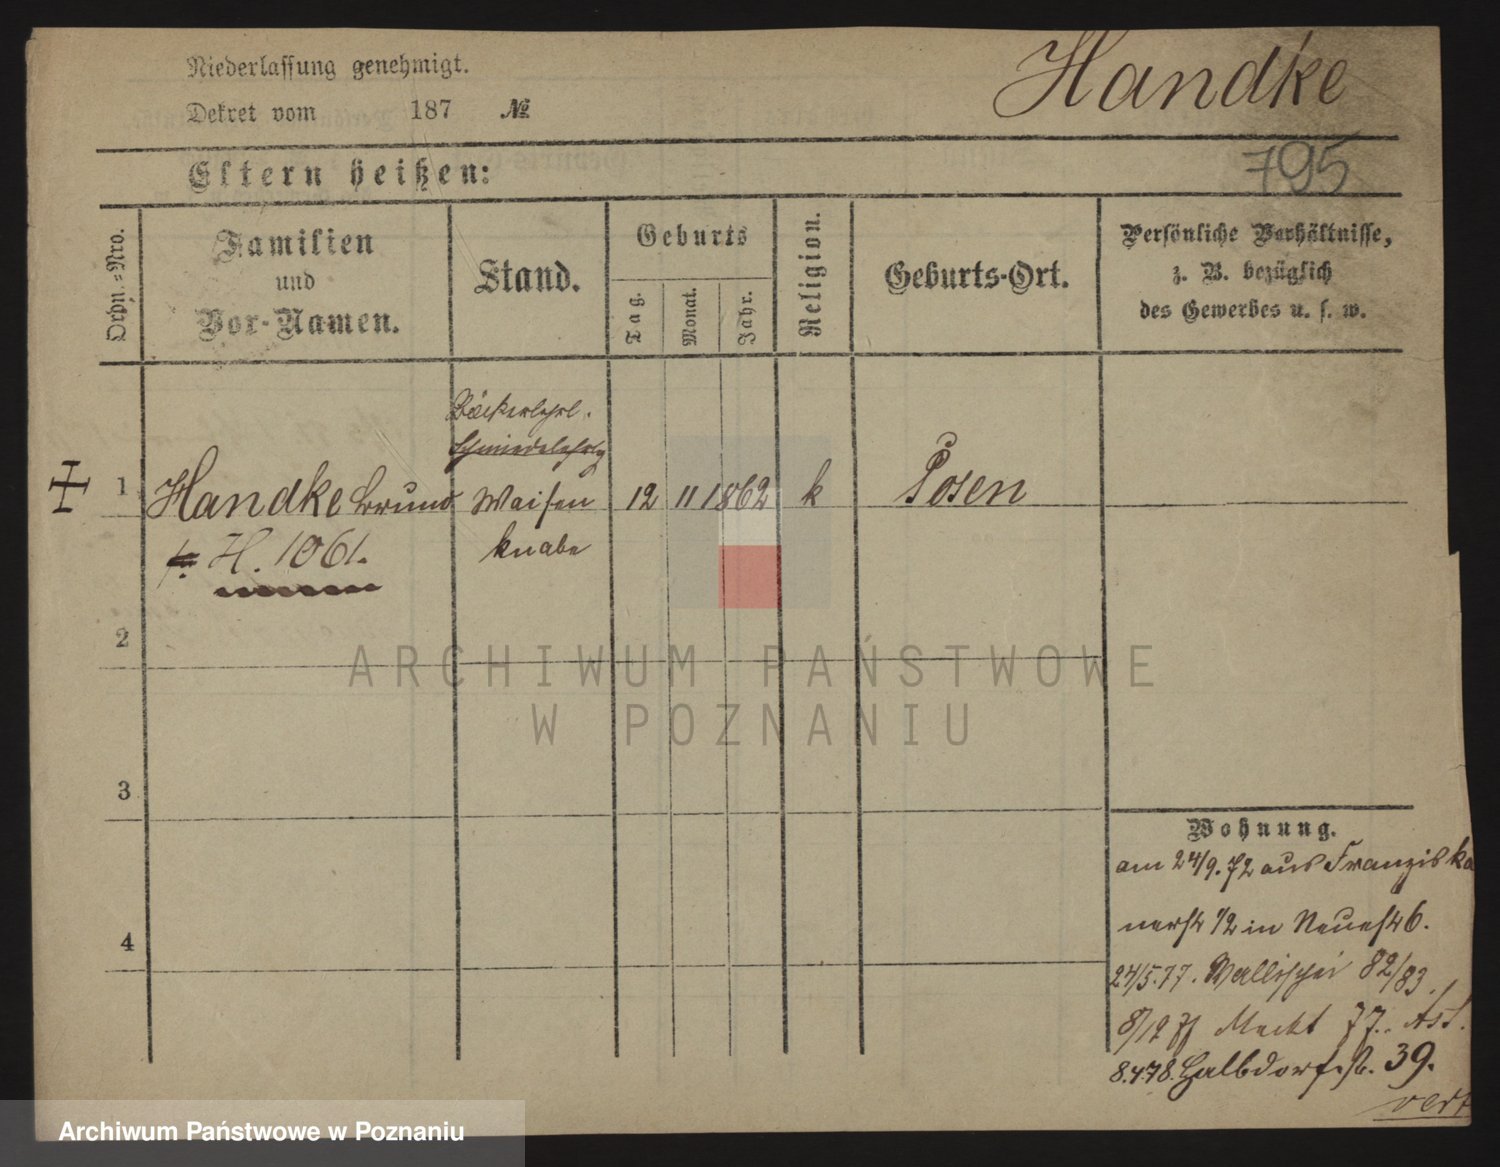 Niederlassung genehmigt.
Dekret vom 187 №
Handke
Eltern heißen:
795
Ordn.-Nro.
Familien
und
Vor-Namen.
Stand.
Geburts
Tag.
Monat.
Jahr.
Religion.
Geburts-Ort.
Persönliche Verhältnisse,
z. B. bezüglich
des Gewerbes u. s. w.
Bäckerlehrl.
Schmiedelehrlg
1 Handke Bruno Waisen 12 11 1862 k Posen
H. 1061. knabe
2
ARCHIWUM PAŃSTWOWE
W POZNANIU
3
4
Wohnung.
am 24/9.72 aus Franziska
nerstr 1/2 in Neuestr 6.
24/5.77. Wallischei 82/83.
8/12 77 Markt 77.
8.4.78. Halbdorfstr. 39.
vert
Archiwum Państwowe w Poznaniu